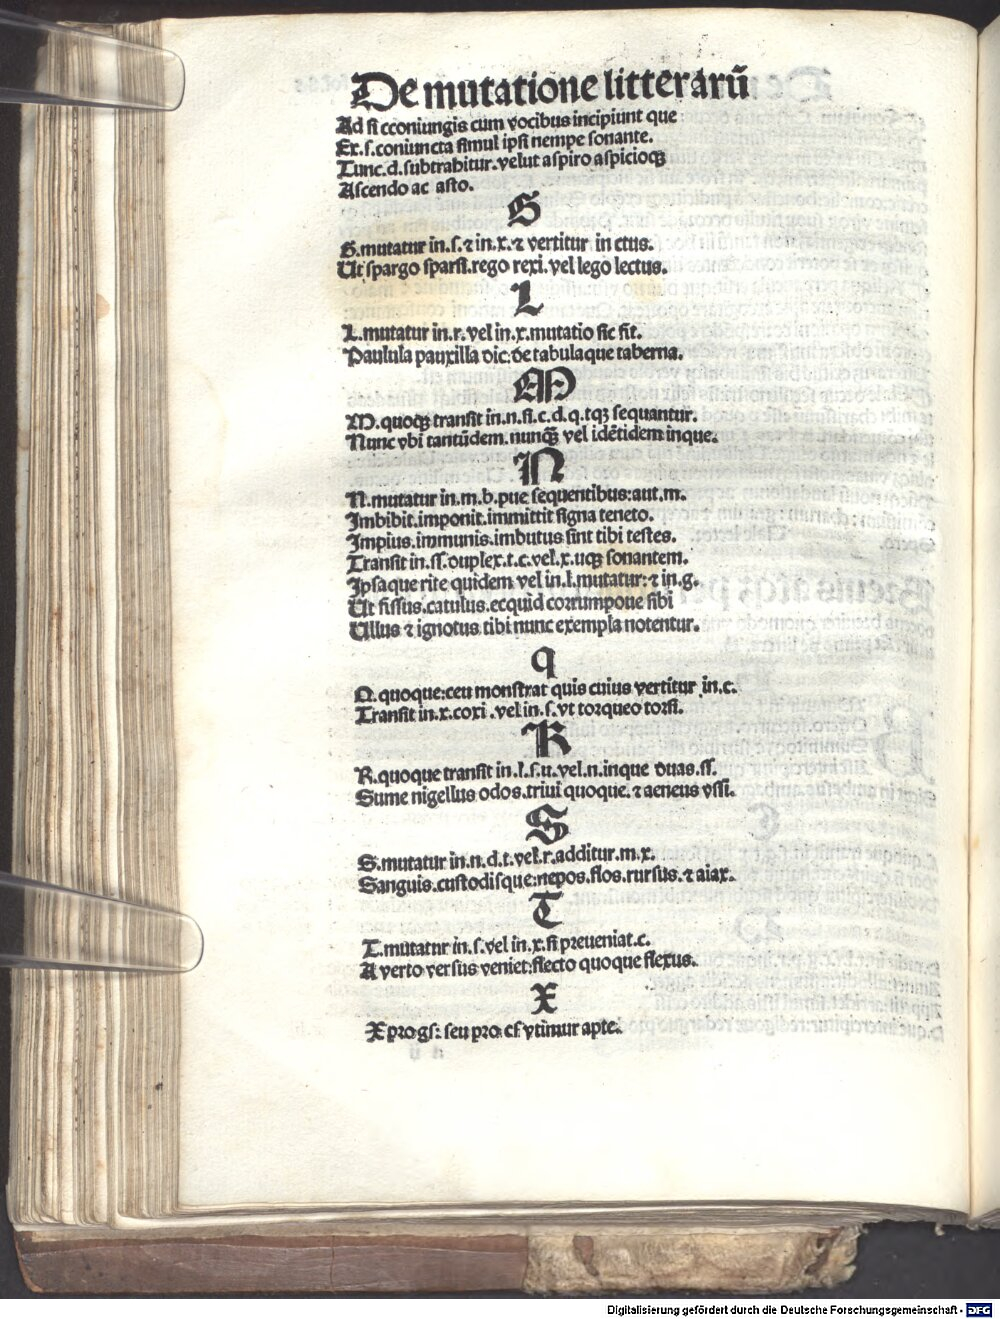 De mutatione litterarū
Ad si cconiungis cum vocibus incipiunt que
Ex.s.coniuncta simul ipsi nempe sonante.
Tunc.d.subtrahitur.velut aspiro aspicioqꝫ
Ascendo ac asto.
G
G.mutatur in.s.⁊ in.x.⁊ vertitur in ctus.
Ut spargo sparsi.rego rexi.vel lego lectus.
L
L.mutatur in.r.vel in.x.mutatio sic fit.
Paulula pauxilla dic:de tabulaque taberna.
M
M.quoqꝫ transit in.n.si.c.d.q.tqꝫ sequantur.
Nunc vbi tantūdem.nunqꝫ vel idētidem inque.
N
N.mutatur in.m.b.pue sequentibus:aut.m.
Imbibit.imponit.immittit signa teneto.
Impius.immunis.imbutus sint tibi testes.
Transit in.ss.duplex.t.c.vel.x.uqꝫ sonantem.
Ipsaque rite quidem vel in.l.mutatur:⁊ in.g.
Ut fissus.catulus.ecquid corrumpoue sibi
Ullus ⁊ ignotus tibi nunc exempla notentur.
q
Q.quoque:ceu monstrat quis cuius vertitur in.c.
Transit in.x.coxi.vel in.s.vt torqueo torsi.
R
R.quoque transit in.l.s.u.vel.n.inque duas.ss.
Sume nigellus odos.triui quoque.⁊ aeneus vssi.
S
S.mutatur in.n.d.t.vel.r.additur.m.x.
Sanguis.custodisque:nepos.flos.rursus.⁊ aiax.
T
T.mutatur in.s.vel in.x.si preueniat.c.
A verto versus veniet:flecto quoque flexus.
X
X pro.gs: seu pro.cs vtimur apte.
Digitalisierung gefördert durch die Deutsche Forschungsgemeinschaft - DFG